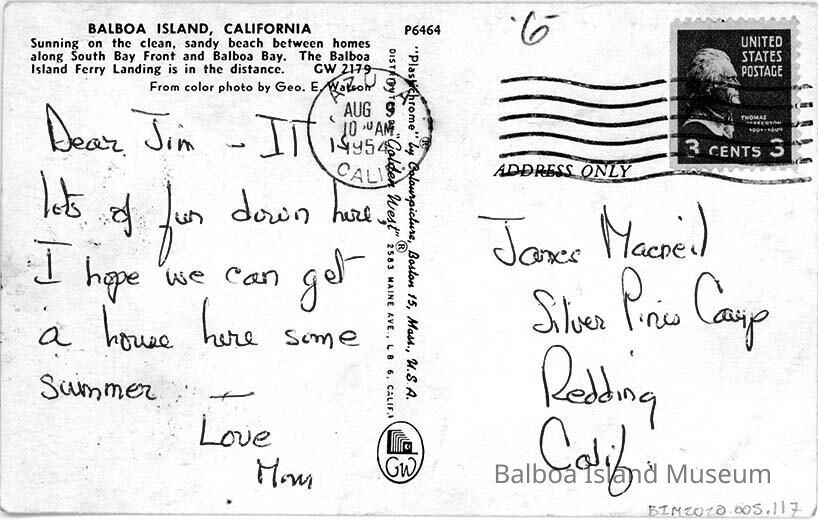 BALBOA ISLAND, CALIFORNIA
Sunning on the clean, sandy beach between homes
along South Bay Front and Balboa Bay. The Balboa
Island Ferry Landing is in the distance. GW 2179
From color photo by Geo. E. Watson
P6464
Dear Jim - IT is
lots of fun down here.
I hope we can get
a house here some
summer -
Love
Mom
AUG
10 AM
1954
CALIF
"Plastichrome" ® by Colourpicture, Boston 15, Mass., U.S.A.
"Golden West" ®
2583 MAINE AVE., L B 6, CALIF.
GW
6
UNITED
STATES
POSTAGE
THOMAS
JEFFERSON
3 CENTS 3
ADDRESS ONLY
James Macneil
Silver Pines Camp
Redding
Calif.
Balboa Island Museum
BIM2020.005.117